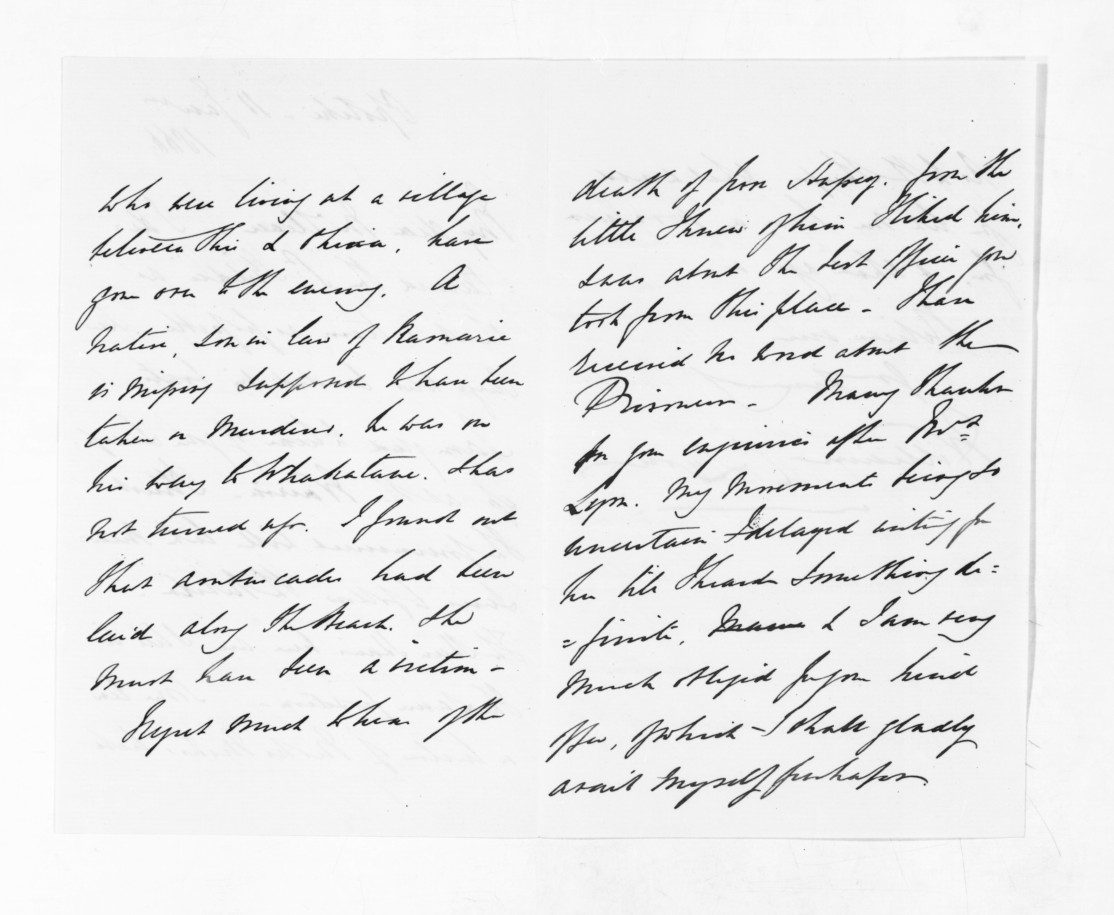 who were living at a village
between this & Ohiwa, have
gone over to the enemy. A
Native, son in law of Kamarie
is missing supposed to have been
taken or murdered. he was on
his way to Whakatane. & has
not turned up. I found out
that ambuscades had been
laid along the Beach. & he
must have been a victim -
I regret much to hear of the
death of poor Hussey. from the
little I knew of him I liked him,
& was about the best officer you
took from this place - I have
received no word about the
Prisoners - Many thanks
for your enquiries after Mrs
Lyon. My movements being so
uncertain I delayed writing for
her till I heard something de=
=finite, & I am very
much obliged for your kind
offer, of which - I shall gladly
avail myself perhaps